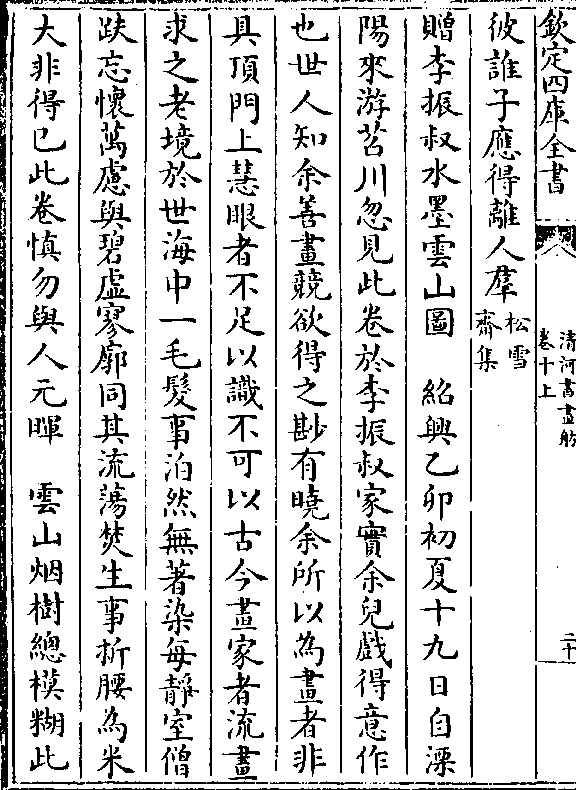 欽定四庫全書
清河書畫舫
卷十上
二十
彼誰子應得離人羣
松雪
齋集
贈李振叔水墨雲山圖　紹興乙卯初夏十九日自溧
陽來游苕川忽見此卷於李振叔家實余兒戲得意作
也世人知余善畫競欲得之尠有曉余所以為畫者非
具頂門上慧眼者不足以識不可以古今畫家者流畫
求之老境於世海中一毛髮事泊然無著染每靜室僧
趺忘懷萬慮與碧虛寥廓同其流蕩焚生事折腰為米
大非得已此卷慎勿與人元暉　雲山烟樹總模糊此